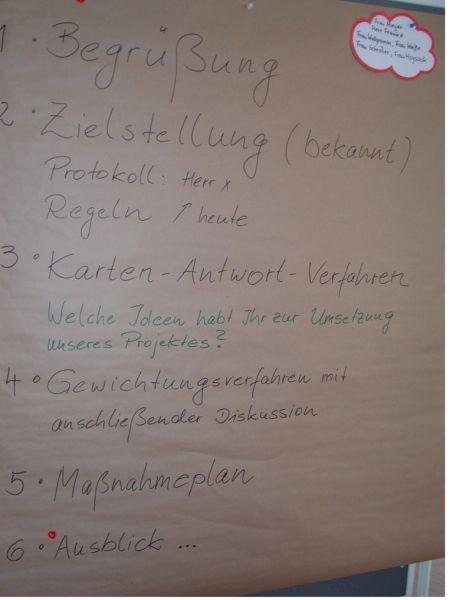 Frau Meyer
Herr
Frau Frau Weiße
Frau Schröter, Frau
1. Begrüßung
2. Zielstellung (bekannt)
Protokoll: Herr x
Regeln ↗ heute
3. Karten-Antwort-Verfahren
Welche Ideen habt Ihr zur Umsetzung
unseres Projektes?
4. Gewichtungsverfahren mit
anschließender Diskussion
5. Maßnahmeplan
6. Ausblick ...